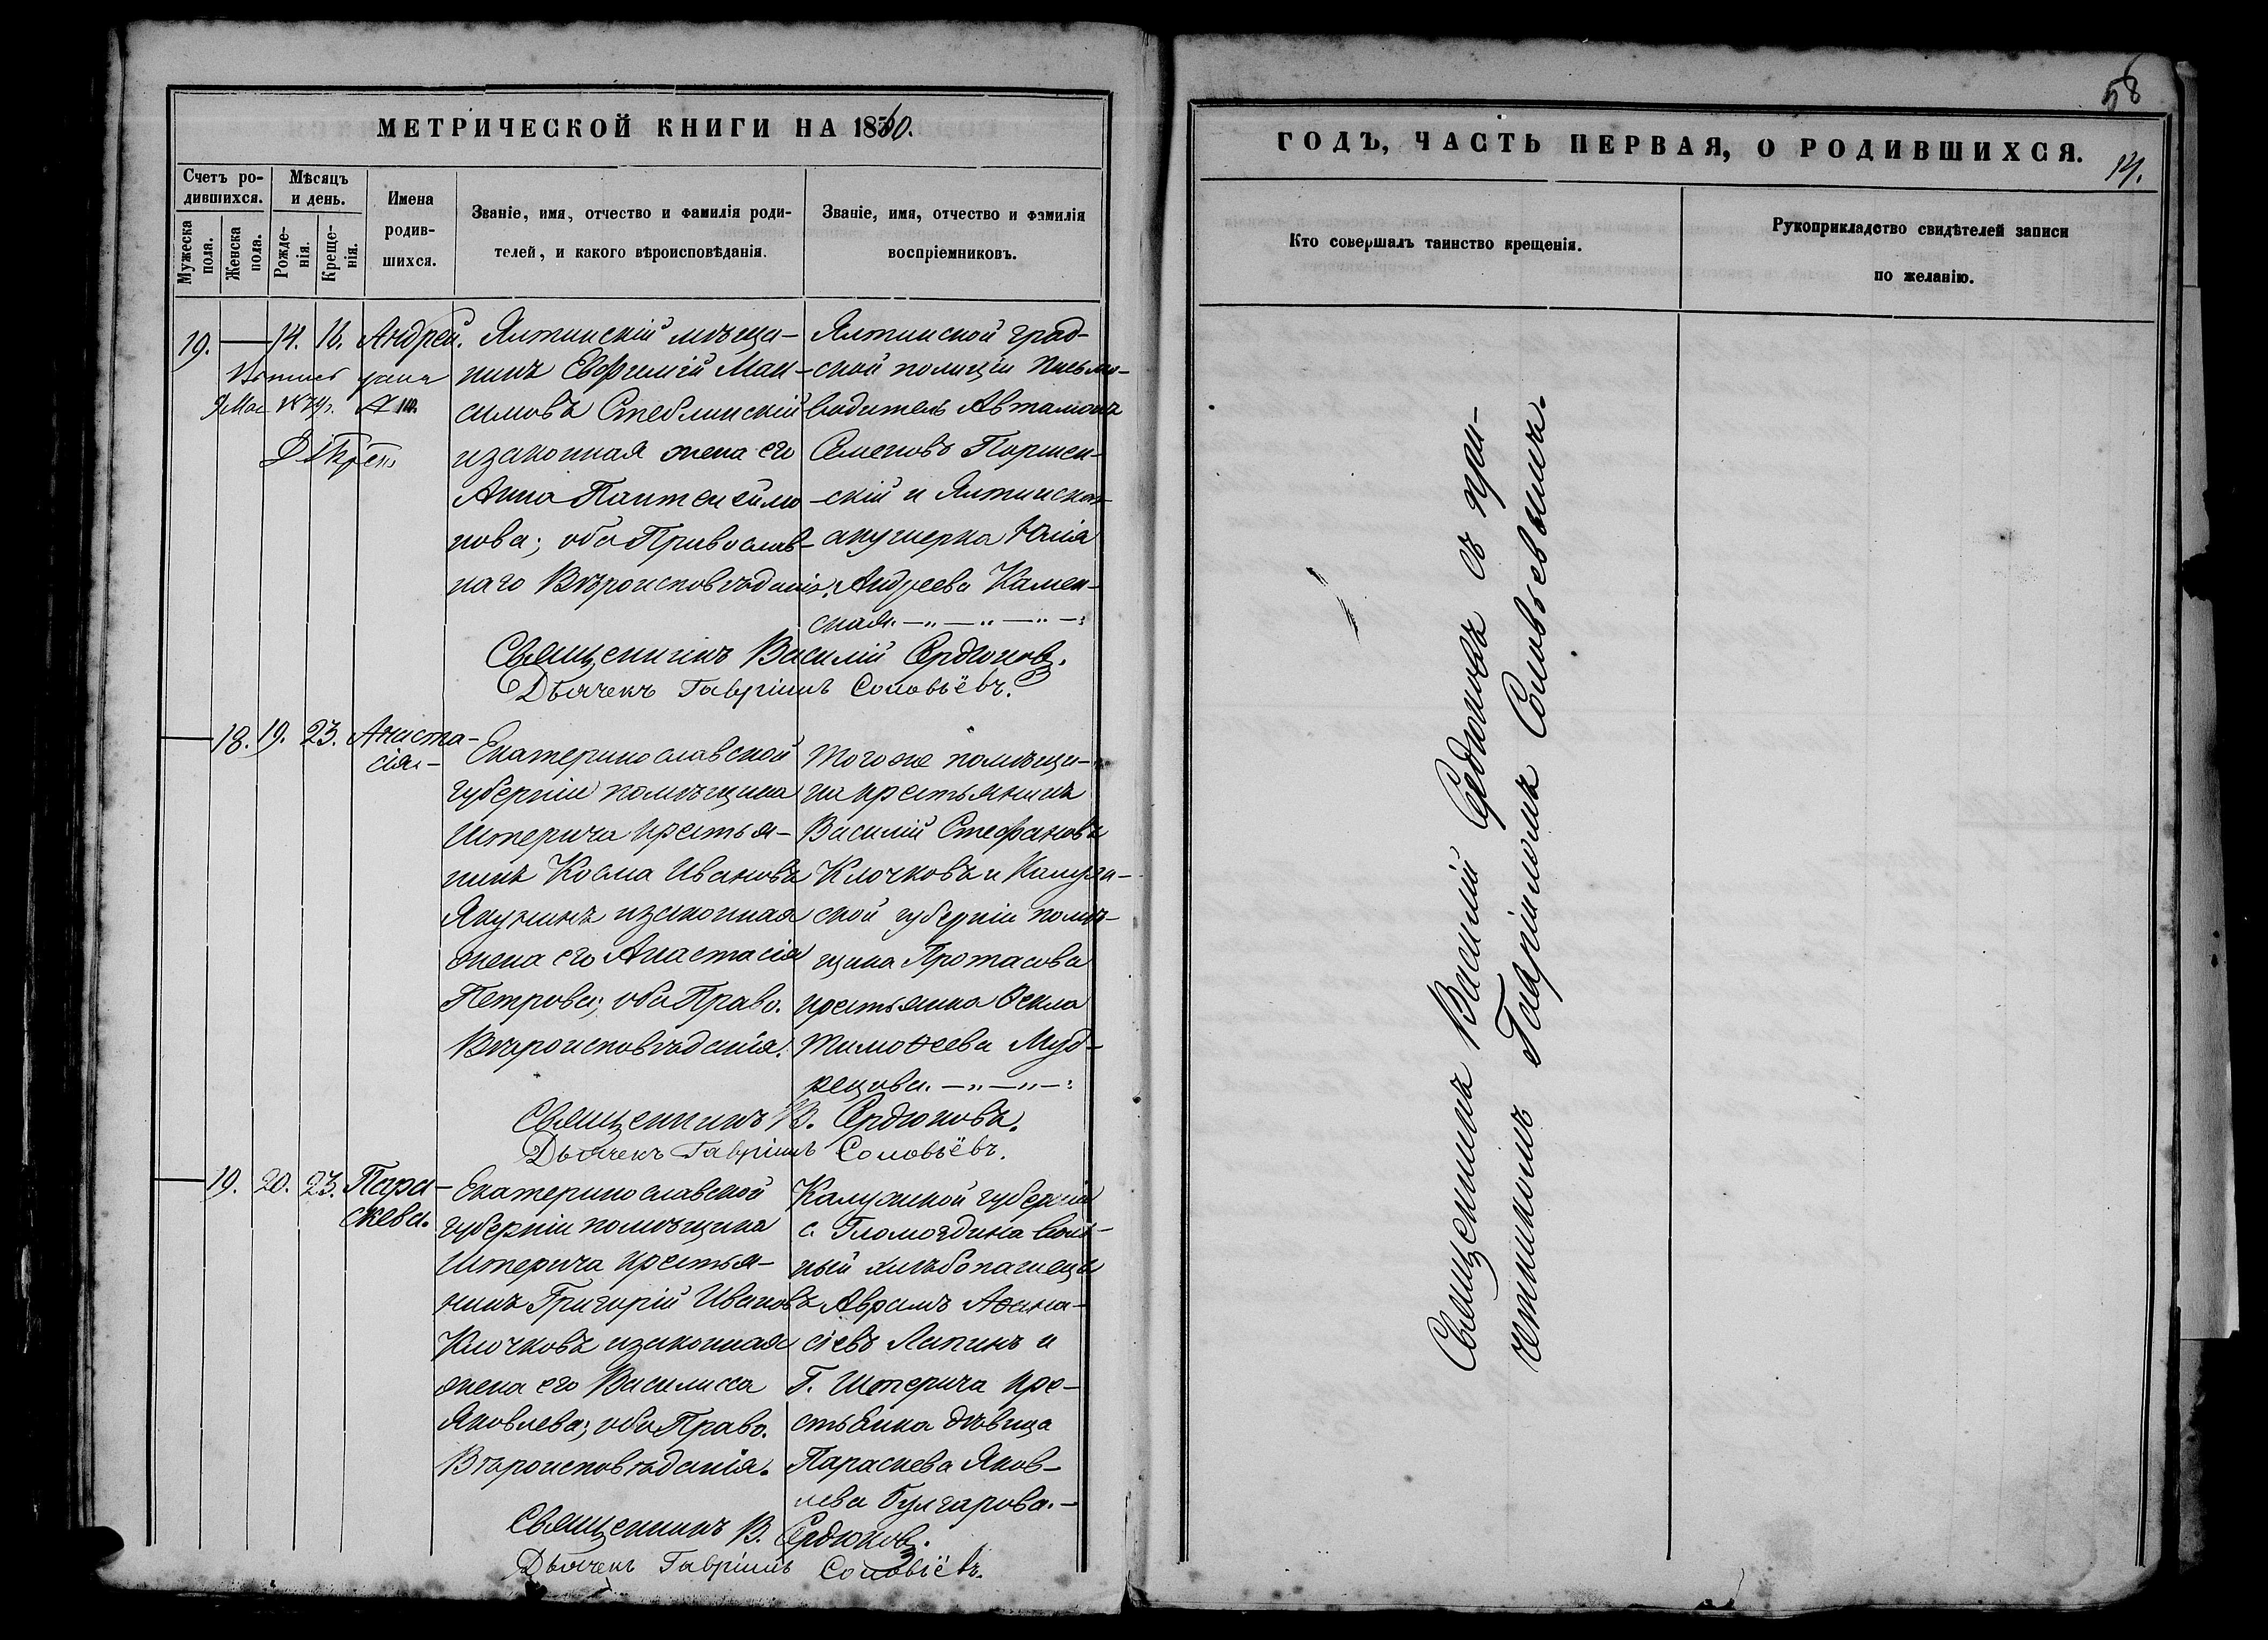 МЕТРИЧЕСКОЙ КНИГИ НА 1860.
Счетъ ро-
дившихся.
Мужеска
пола.
Женска
пола.
Мѣсяцъ
и день.
Рожде-
нія.
Креще-
нія.
Имена
родив-
шихся.
Званіе, имя, отчество и фамилія роди-
телей, и какого вѣроисповѣданія.
Званіе, имя, отчество и фамилія
воспріемниковъ.
19. — 14. 16. Андрей.
9 Мая 1874г.
Ялтинскій мѣща-
нинъ Евфимій Мак-
симовъ Стеблинскій
изаконная жена его
Анна Пантелеймо-
нова; оба Православ-
наго Вѣроисповѣданія.
Ялтинской град-
ской полиціи письмо-
водитель Автамонъ
Семеновъ Поржен-
скій и Ялтинская
акушерка Юлія
Андреева Камен-
ская.
Священникъ Василій Сердюковъ.
Дьячекъ Гавріилъ Соловьёвъ.
— 18. 19. 23. Анаста-
сія.
Екатеринославской
губерніи помѣщика
Штерича крестья-
нинъ Косма Ивановъ
Якунинъ изаконная
жена его Анастасія
Петрова; оба Право.
Вѣроисповѣданія.
Тогоже помѣщи-
ка крестьянинъ
Василій Стефановъ
Клочковъ и Калуж-
ской губерніи помѣ-
щика Протасова
крестьянка Ѳекла
Тимоѳеева Муд-
рецова.
Священникъ В. Сердюковъ.
Дьячекъ Гавріилъ Соловьёвъ.
— 19. 20. 23. Пара-
скева.
Екатеринославской
губерніи помѣщика
Штерича крестья-
нинъ Григорій Ивановъ
Клочковъ изаконная
жена его Василисса
Яковлева; оба Право.
Вѣроисповѣданія.
Калужской губерніи
с. воль-
ный хлѣбопашецъ
Аврамъ Аѳана-
сіевъ Лапинъ и
Г. Штерича кре-
стьянка дѣвица
Параскева Яков-
лева Булгарова.
Священникъ В. Сердюковъ.
Дьячекъ Гавріилъ Соловьёвъ.
58
ГОДЪ, ЧАСТЬ ПЕРВАЯ, О РОДИВШИХСЯ.
14.
Кто совершалъ таинство крещенія.
Рукоприкладство свидѣтелей записи
по желанію.
Священникъ Василій Сердюковъ съ при-
четникомъ Гавріиломъ Соловьевымъ.